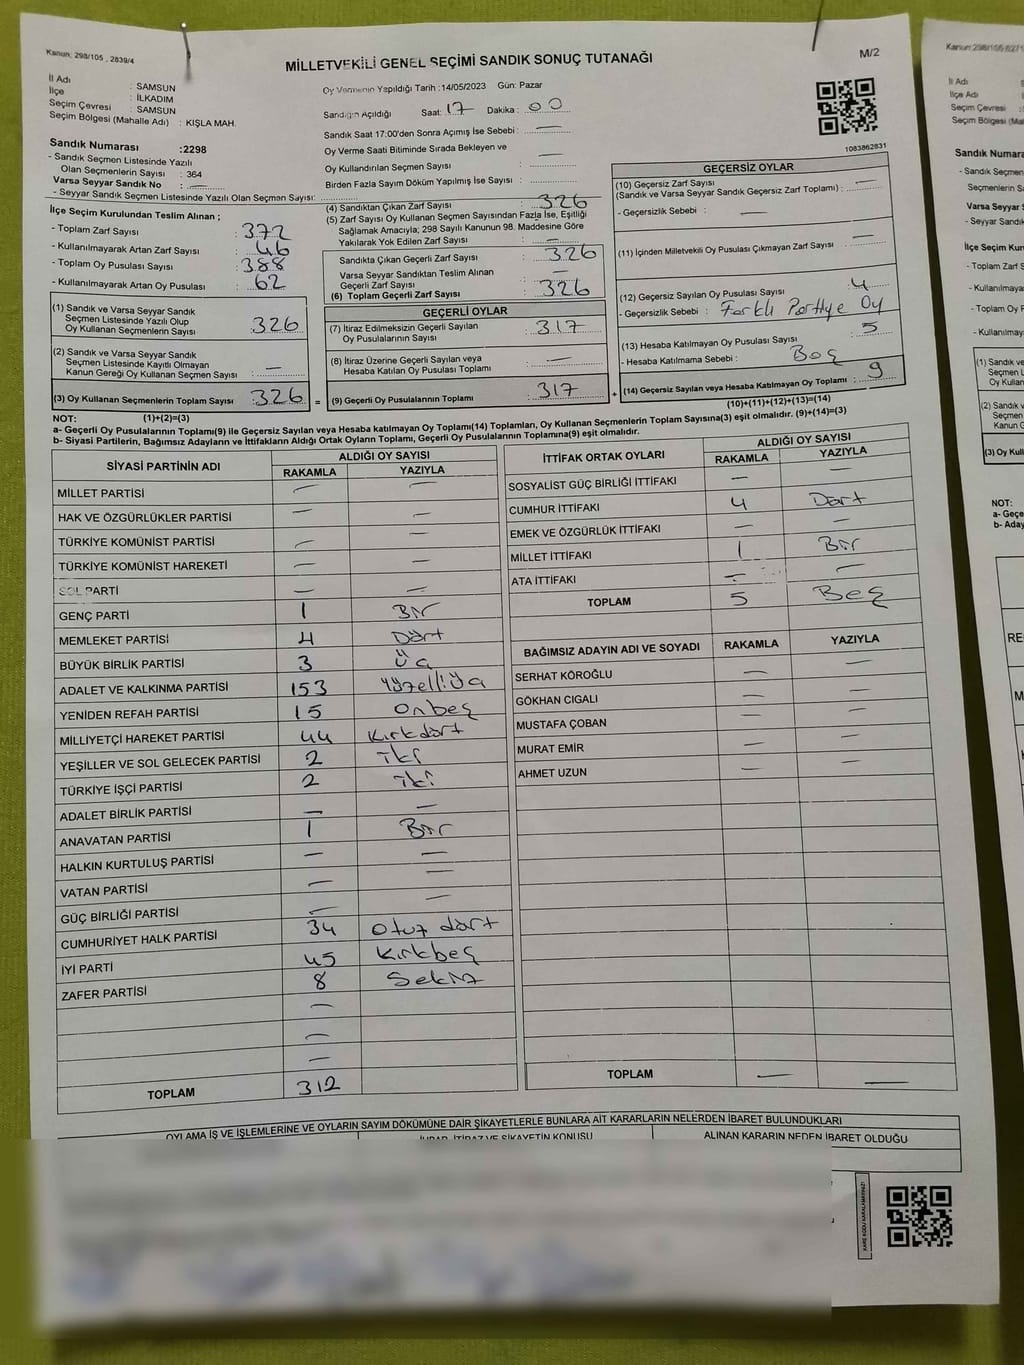 Kanun: 298/105 , 2839/4
MİLLETVEKİLİ GENEL SEÇİMİ SANDIK SONUÇ TUTANAĞI
M/2
İl Adı : SAMSUN
İlçe : İLKADIM
Seçim Çevresi : SAMSUN
Seçim Bölgesi (Mahalle Adı) : KIŞLA MAH.
Sandık Numarası :2298
- Sandık Seçmen Listesinde Yazılı
Olan Seçmenlerin Sayısı : 364
Varsa Seyyar Sandık No : —
- Seyyar Sandık Seçmen Listesinde Yazılı Olan Seçmen Sayısı:
Oy Vermenin Yapıldığı Tarih :14/05/2023 Gün: Pazar
Sandığın Açıldığı Saat: 17 Dakika : 00
Sandık Saat 17:00'den Sonra Açımış İse Sebebi : —
Oy Verme Saati Bitiminde Sırada Bekleyen ve
Oy Kullandırılan Seçmen Sayısı : —
Birden Fazla Sayım Döküm Yapılmış İse Sayısı :
1083862831
İlçe Seçim Kurulundan Teslim Alınan ;
- Toplam Zarf Sayısı : 372
- Kullanılmayarak Artan Zarf Sayısı : 46
- Toplam Oy Pusulası Sayısı : 388
- Kullanılmayarak Artan Oy Pusulası : 62
(1) Sandık ve Varsa Seyyar Sandık
Seçmen Listesinde Yazılı Olup
Oy Kullanan Seçmenlerin Sayısı : 326
(2) Sandık ve Varsa Seyyar Sandık
Seçmen Listesinde Kayıtlı Olmayan
Kanun Gereği Oy Kullanan Seçmen Sayısı : —
(3) Oy Kullanan Seçmenlerin Toplam Sayısı : 326 =
(4) Sandıktan Çıkan Zarf Sayısı : 326
(5) Zarf Sayısı Oy Kullanan Seçmen Sayısından Fazla İse, Eşitliği
Sağlamak Amacıyla; 298 Sayılı Kanunun 98. Maddesine Göre
Yakılarak Yok Edilen Zarf Sayısı : —
Sandıkta Çıkan Geçerli Zarf Sayısı : 326
Varsa Seyyar Sandıktan Teslim Alınan
Geçerli Zarf Sayısı : —
(6) Toplam Geçerli Zarf Sayısı : 326
GEÇERLİ OYLAR
(7) İtiraz Edilmeksizin Geçerli Sayılan
Oy Pusulalarının Sayısı : 317
(8) İtiraz Üzerine Geçerli Sayılan veya
Hesaba Katılan Oy Pusulası Toplamı : —
(9) Geçerli Oy Pusulalarının Toplamı : 317 +
GEÇERSİZ OYLAR
(10) Geçersiz Zarf Sayısı
(Sandık ve Varsa Seyyar Sandık Geçersiz Zarf Toplamı) : —
- Geçersizlik Sebebi : —
(11) İçinden Milletvekili Oy Pusulası Çıkmayan Zarf Sayısı : —
(12) Geçersiz Sayılan Oy Pusulası Sayısı : 4
- Geçersizlik Sebebi : Farklı Partiye Oy
(13) Hesaba Katılmayan Oy Pusulası Sayısı : 5
- Hesaba Katılmama Sebebi : Boş
(14) Geçersiz Sayılan veya Hesaba Katılmayan Oy Toplamı : 9
NOT: (1)+(2)=(3) (10)+(11)+(12)+(13)=(14)
a- Geçerli Oy Pusulalarının Toplamı(9) ile Geçersiz Sayılan veya Hesaba katılmayan Oy Toplamı(14) Toplamları, Oy Kullanan Seçmenlerin Toplam Sayısına(3) eşit olmalıdır. (9)+(14)=(3)
b- Siyasi Partilerin, Bağımsız Adayların ve İttifakların Aldığı Ortak Oyların Toplamı, Geçerli Oy Pusulalarının Toplamına(9) eşit olmalıdır.
SİYASİ PARTİNİN ADI ALDIĞI OY SAYISI
RAKAMLA YAZIYLA
MİLLET PARTİSİ — —
HAK VE ÖZGÜRLÜKLER PARTİSİ — —
TÜRKİYE KOMÜNİST PARTİSİ — —
TÜRKİYE KOMÜNİST HAREKETİ — —
SOL PARTİ — —
GENÇ PARTİ 1 Bir
MEMLEKET PARTİSİ 4 Dört
BÜYÜK BİRLİK PARTİSİ 3 Üç
ADALET VE KALKINMA PARTİSİ 153 Yüzelliüç
YENİDEN REFAH PARTİSİ 15 Onbeş
MİLLİYETÇİ HAREKET PARTİSİ 44 Kırkdört
YEŞİLLER VE SOL GELECEK PARTİSİ 2 İki
TÜRKİYE İŞÇİ PARTİSİ 2 İki
ADALET BİRLİK PARTİSİ — —
ANAVATAN PARTİSİ 1 Bir
HALKIN KURTULUŞ PARTİSİ — —
VATAN PARTİSİ — —
GÜÇ BİRLİĞİ PARTİSİ — —
CUMHURİYET HALK PARTİSİ 34 Otuz dört
İYİ PARTİ 45 Kırkbeş
ZAFER PARTİSİ 8 Sekiz
—
—
—
TOPLAM 312
İTTİFAK ORTAK OYLARI ALDIĞI OY SAYISI
RAKAMLA YAZIYLA
SOSYALİST GÜÇ BİRLİĞİ İTTİFAKI — —
CUMHUR İTTİFAKI 4 Dört
EMEK VE ÖZGÜRLÜK İTTİFAKI — —
MİLLET İTTİFAKI 1 Bir
ATA İTTİFAKI — —
TOPLAM 5 Beş
BAĞIMSIZ ADAYIN ADI VE SOYADI RAKAMLA YAZIYLA
SERHAT KÖROĞLU — —
GÖKHAN CIGALI — —
MUSTAFA ÇOBAN — —
MURAT EMİR — —
AHMET UZUN — —
TOPLAM — —
OYLAMA İŞ VE İŞLEMLERİNE VE OYLARIN SAYIM DÖKÜMÜNE DAİR ŞİKAYETLERLE BUNLARA AİT KARARLARIN NELERDEN İBARET BULUNDUKLARI
İHBAR, İTİRAZ VE ŞİKAYETİN KONUSU
ALINAN KARARIN NEDEN İBARET OLDUĞU
KARE KODU KARALAMAYINIZ!
İl Adı
İlçe Adı
Seçim Çevresi
Seçim Bölgesi (Mahal
Sandık Numara
- Sandık Seçmen
Seçmenlerin S
Varsa Seyyar S
- Seyyar Sandık
İlçe Seçim Kuru
- Toplam Zarf S
- Kullanılmaya
- Toplam Oy P
- Kullanılmay
(1) Sandık ve
Seçmen L
Oy Kullan
(2) Sandık
Seçmen
Kanun G
(3) Oy Kull
NOT:
a- Geçe
b- Aday
RE
M